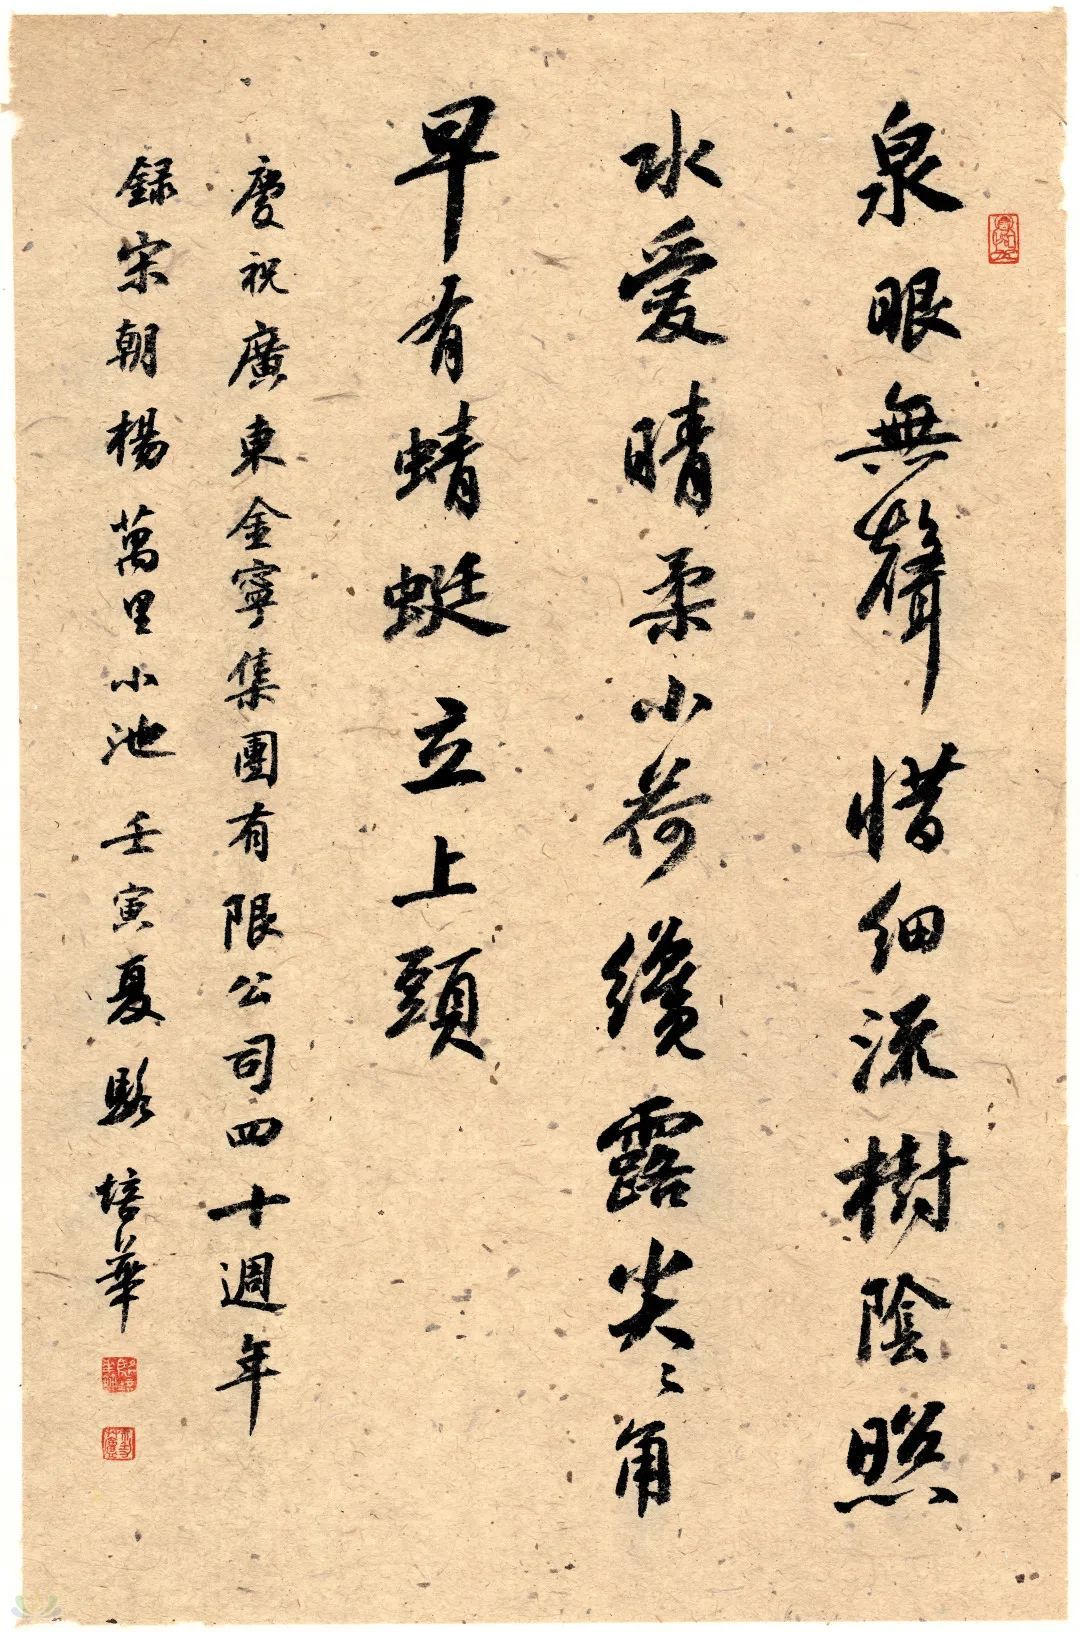 泉眼無聲惜細流樹陰照
水愛晴柔小荷纔露尖〻角
早有蜻蜓立上頭
慶祝廣東金寧集團有限公司四十週年
録宋朝楊萬里小池壬寅夏駱培華